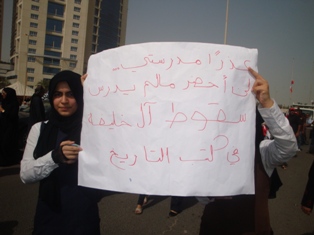 عذرًا مدرستي..
لن أحضر مالم يدرس
سقوط آل خليفة
في كتب التاريخ